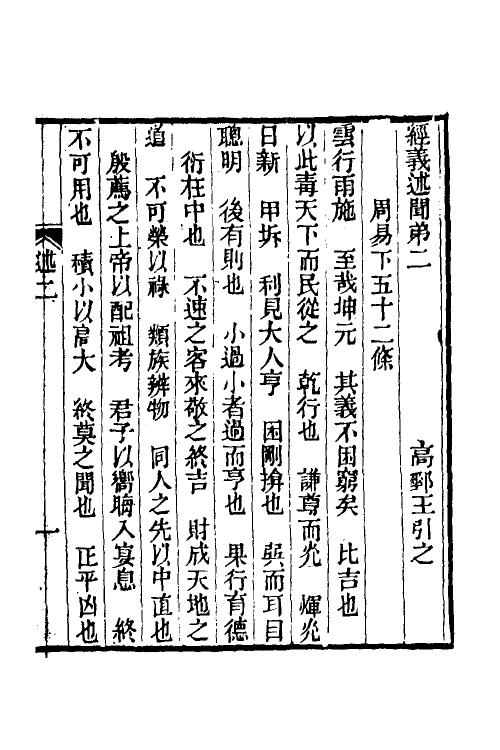 經義述聞弟二 高郵王引之
周易下五十二條
雲行雨施 至哉坤元 其義不困窮矣 比吉也
以此毒天下而民從之 乾行也 謙尊而光 煇光
日新 甲坼 利見大人亨 困剛揜也 巽而耳目
聰明 後有則也 小過小者過而亨也 果行育德
衍在中也 不速之客來敬之終吉 財成天地之
道 不可榮以祿 類族辨物 同人之先以中直也
殷薦之上帝以配祖考 君子以嚮晦入宴息 終
不可用也 積小以高大 終莫之聞也 正乎凶也
述二 一